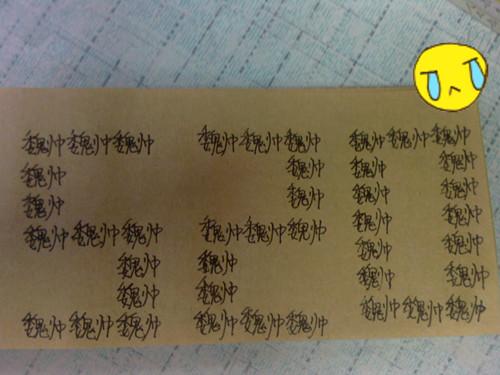 魏帅魏帅魏帅 魏帅魏帅魏帅 魏帅魏帅魏帅
魏帅 魏帅 魏帅 魏帅
魏帅 魏帅 魏帅 魏帅
魏帅魏帅魏帅 魏帅魏帅魏帅 魏帅 魏帅
魏帅 魏帅 魏帅 魏帅
魏帅 魏帅 魏帅 魏帅
魏帅魏帅魏帅 魏帅魏帅魏帅 魏帅魏帅魏帅